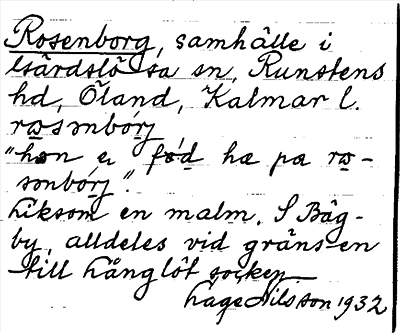 Rosenborg, samhälle i
Gärdslösa sn, Runstens
hd, Öland, Kalmar l.
rosənbórj
"hon e fö́d hæ pæ ro-
sənbórj".
Liksom en malm. I Bäg-
by, alldeles vid gränsen
till Långlöt socken.
Lage Nilsson 1932